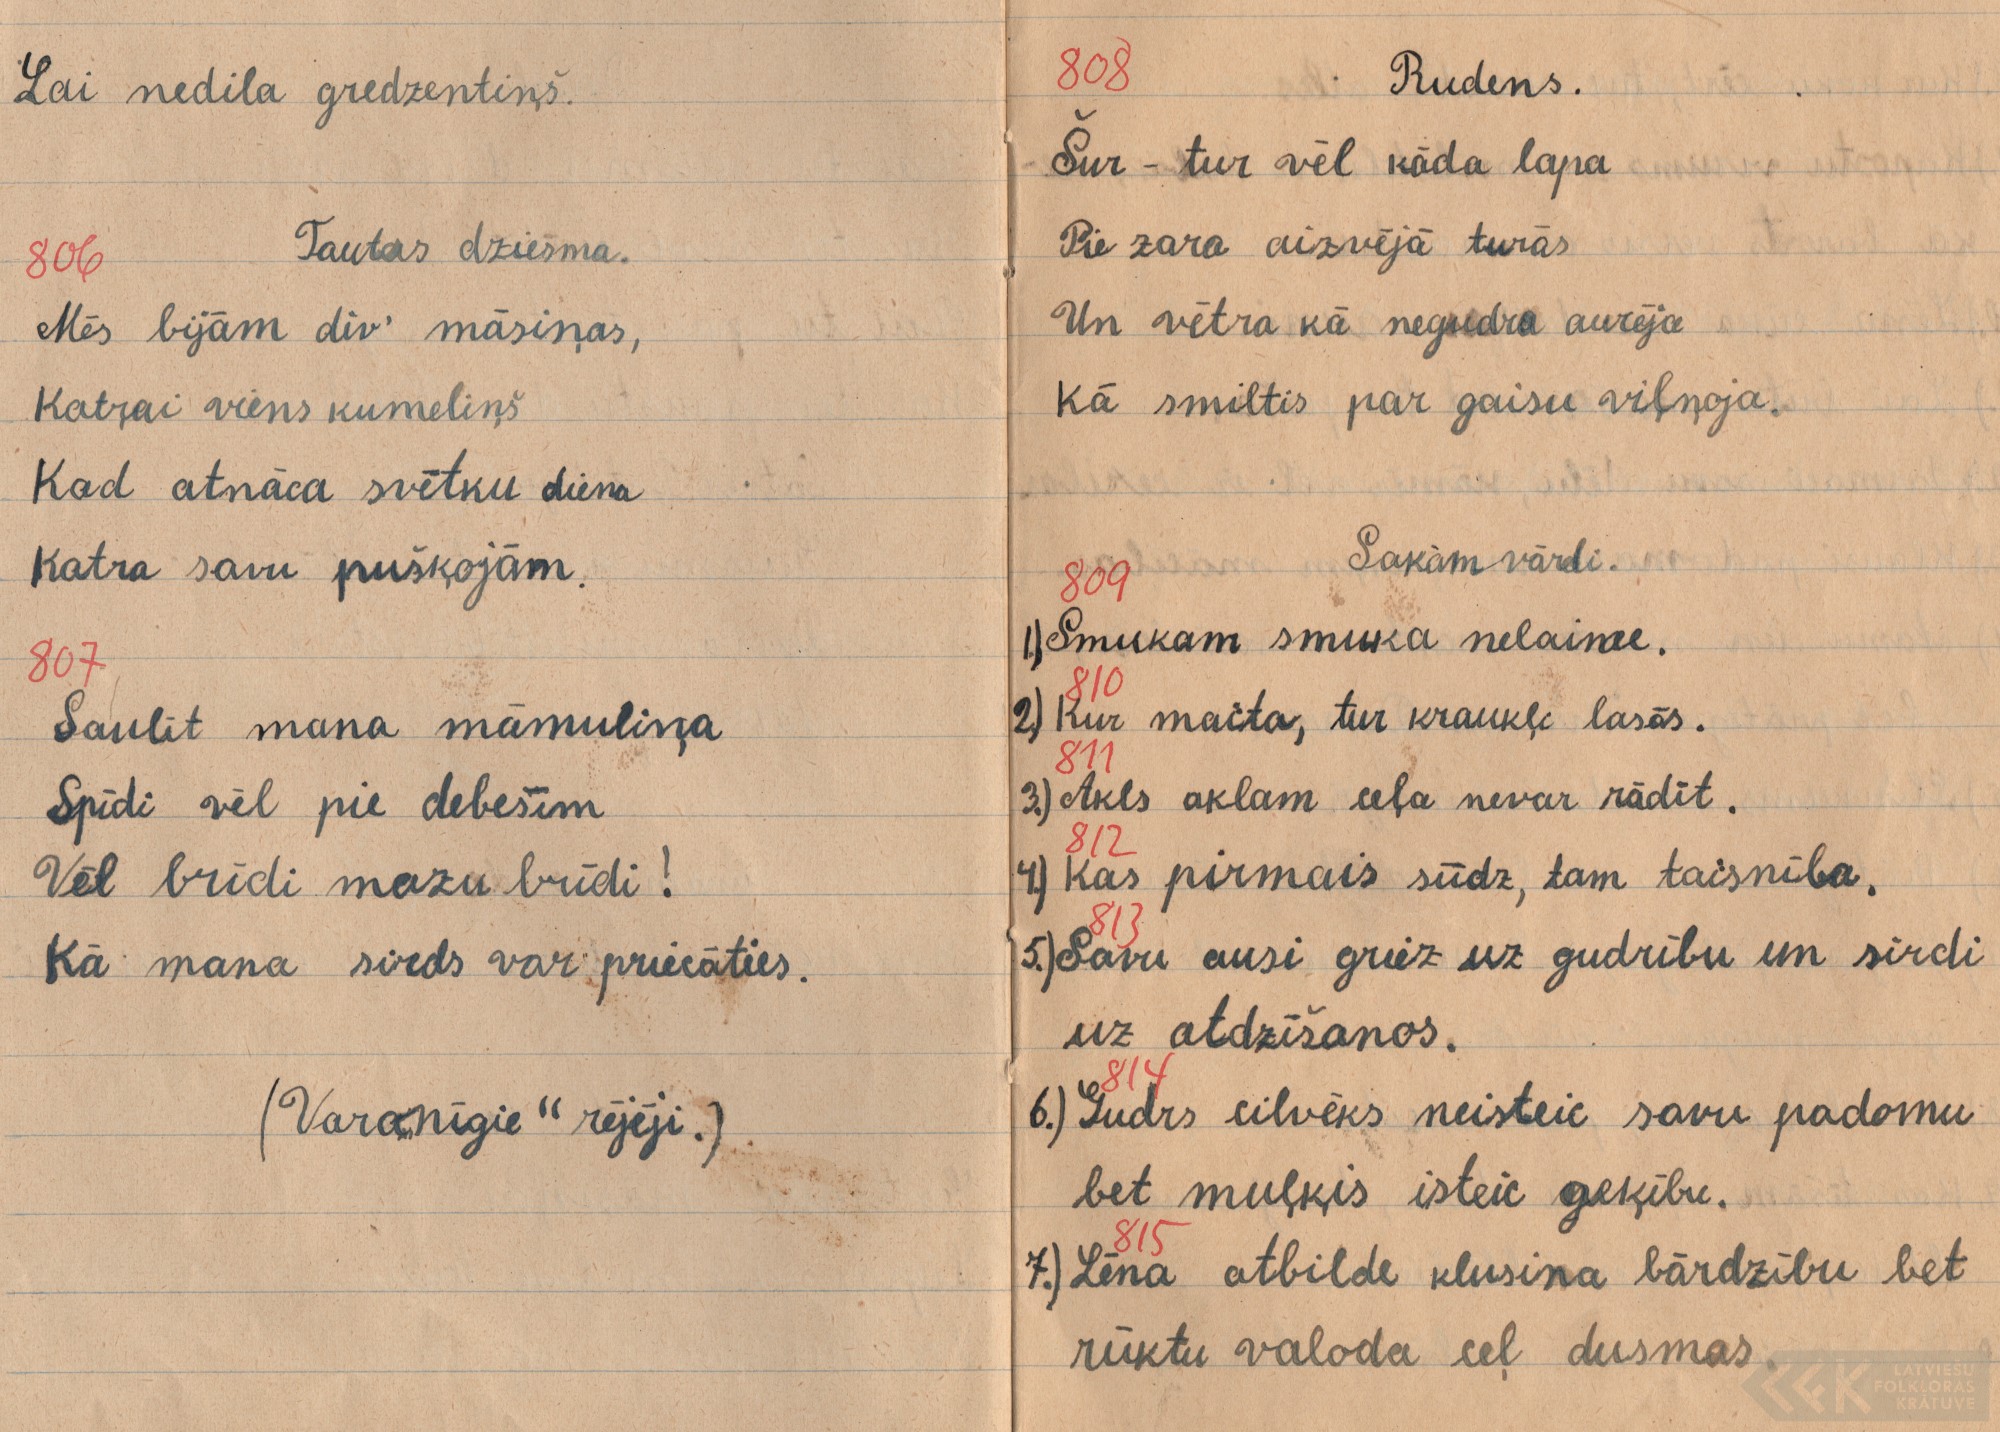 Lai nedila gredzentiņš.
806 Tautas dziesma.
Mēs bijām div' māsiņas,
Katŗai viens kumeliņš
Kad atnāca svētku diena
Katra savu pušķojām.
807
Saulīt mana māmuliņa
Spīdi vēl pie debešīm
Vēl brīdi mazu brīdi!
Kā mana sirds var priecāties.
(Varanīgie“ rējēji.)
808 Rudens.
Šur - tur vēl kāda lapa
Pie zara aizvējā turās
Un vētra kā negudra aurēja
Kā smiltis par gaisu viļņoja.
Sakām vārdi.
809
1.) Smukam smuka nelaime.
810
2.) Kur maita, tur kraukļi lasās.
811
3.) Akls aklam ceļa nevar rādīt.
812
4.) Kas pirmais sūdz, tam taisnība.
813
5.) Savu ausi griez uz gudrību un sirdi
uz atdzīšanos.
814
6.) Gudrs cilvēks neisteic savu padomu
bet muļķis isteic geķību.
815
7.) Lēna atbilde klusina bārdzību bet
rūktu valoda ceļ dusmas.
LATVIEŠU
FOLKLORAS
KRĀTUVE